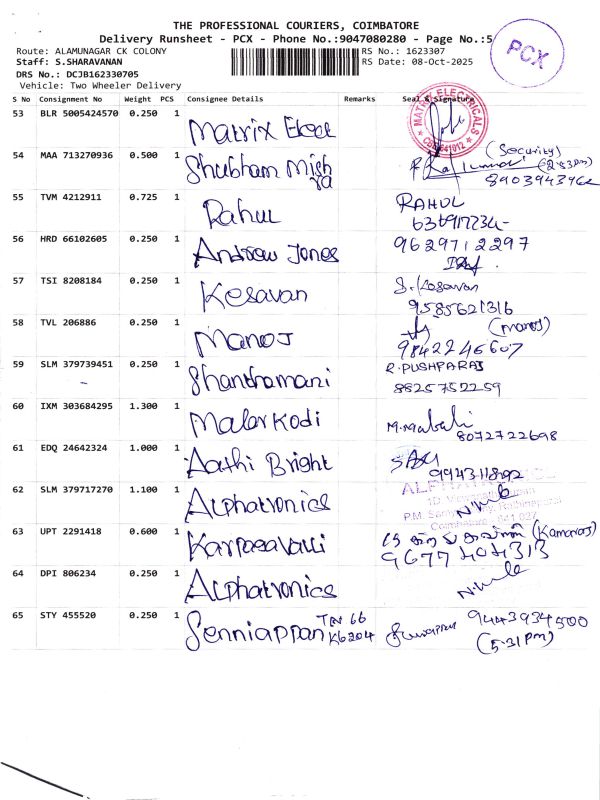 THE PROFESSIONAL COURIERS, COIMBATORE
Delivery Runsheet - PCX - Phone No.:9047080280 - Page No.:5
PCX
Route: ALAMUNAGAR CK COLONY
RS No.: 1623307
Staff: S.SHARAVANAN
RS Date: 08-Oct-2025
DRS No.: DCJB162330705
Vehicle: Two Wheeler Delivery
S No Consignment No Weight PCS Consignee Details Remarks Seal & Signature
53 BLR 5005424570 0.250 1 Matrix Elect
MATRIX ELECTRICALS
54 MAA 713270936 0.500 1 Shubham Mishra
(Security)
8903943962
55 TVM 4212911 0.725 1 Rahul RAHUL
56 HRD 66102605 0.250 1 Andrew Jones 9629712297
57 TSI 8208184 0.250 1 Kesavan
9585621316
58 TVL 206886 0.250 1 Manoj (Manoj)
9842246607
59 SLM 379739451 0.250 1 Shanthamani R.PUSHPARAJ
8825752259
60 IXM 303684295 1.300 1 Malarkodi
8072722698
61 EDQ 24642324 1.000 1 Aathi Bright
62 SLM 379717270 1.100 1 Alphatronics
63 UPT 2291418 0.600 1 Karpagavalli (Kamaraj)
9677404313
64 DPI 806234 0.250 1 Alphatronics
65 STY 455520 0.250 1 Senniappan TN 66 K6204 9443934500
(5.31 pm)